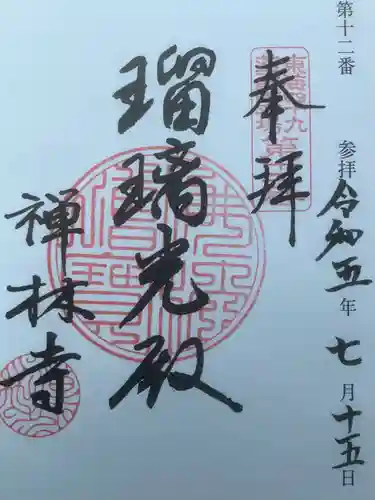 第十二番 参拝 令和五年七月十五日
奉拝
瑠璃光殿
禅林寺